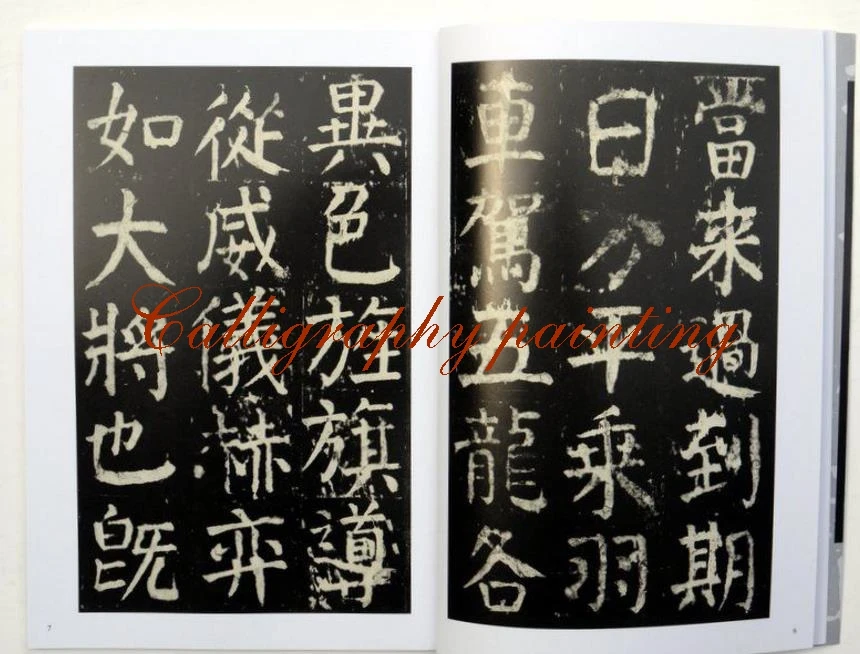 當來過到期
日方平乘羽
車駕五龍各
異色旌旗導
從威儀赫弈
如大將也既
Calligraphy painting
7